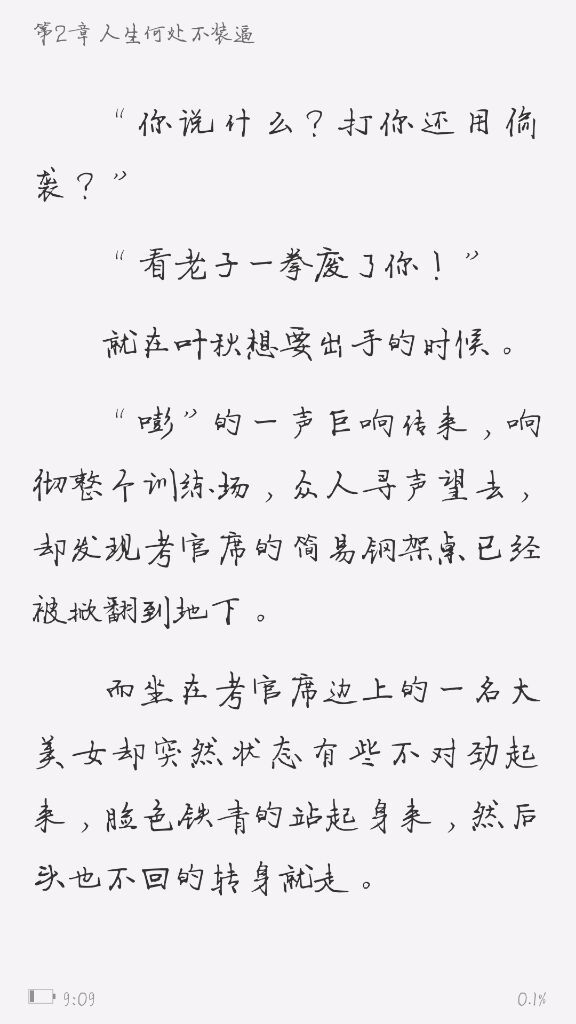 第2章 人生何处不装逼
“你说什么？打你还用偷
袭？”
“看老子一拳废了你！”
就在叶秋想要出手的时候。
“嘭”的一声巨响传来，响
彻整个训练场，众人寻声望去，
却发现考官席的简易钢架桌已经
被掀翻到地下。
而坐在考官席边上的一名大
美女却突然状态有些不对劲起
来，脸色铁青的站起身来，然后
头也不回的转身就走。
9:09
0.1%